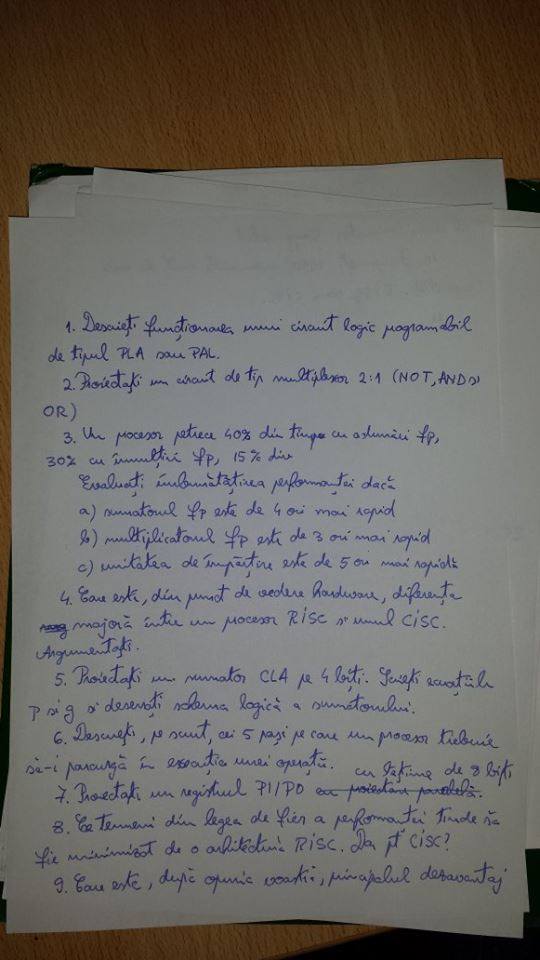 1. Descrieți funcționarea unui circuit logic programabil
de tipul PLA sau PAL.
2. Proiectați un circuit de tip multiplexor 2:1 (NOT, AND și
OR)
3. Un procesor petrece 40% din timp cu adunări fp,
30% cu înmulțiri fp, 15% div
Evaluați îmbunătățirea performanței dacă
a) sumatorul fp este de 4 ori mai rapid
b) multiplicatorul fp este de 3 ori mai rapid
c) unitatea de împărțire este de 5 ori mai rapidă
4. Care este, din punct de vedere hardware, diferența
majoră între un procesor RISC și unul CISC.
Argumentați.
5. Proiectați un sumator CLA pe 4 biți. Scrieți ecuațiile
p și g și desenați schema logică a sumatorului.
6. Descrieți, pe scurt, cei 5 pași pe care un procesor trebuie
să-i parcurgă în execuția unei operații.
cu lățime de 8 biți
7. Proiectați un registru PI/PO cu poiectare paralelă.
8. Ce termeni din legea de fier a performanței tinde să
fie minimizat de o arhitectură RISC. Da pt CISC?
9. Care este, după opinia voastră, principalul dezavantaj